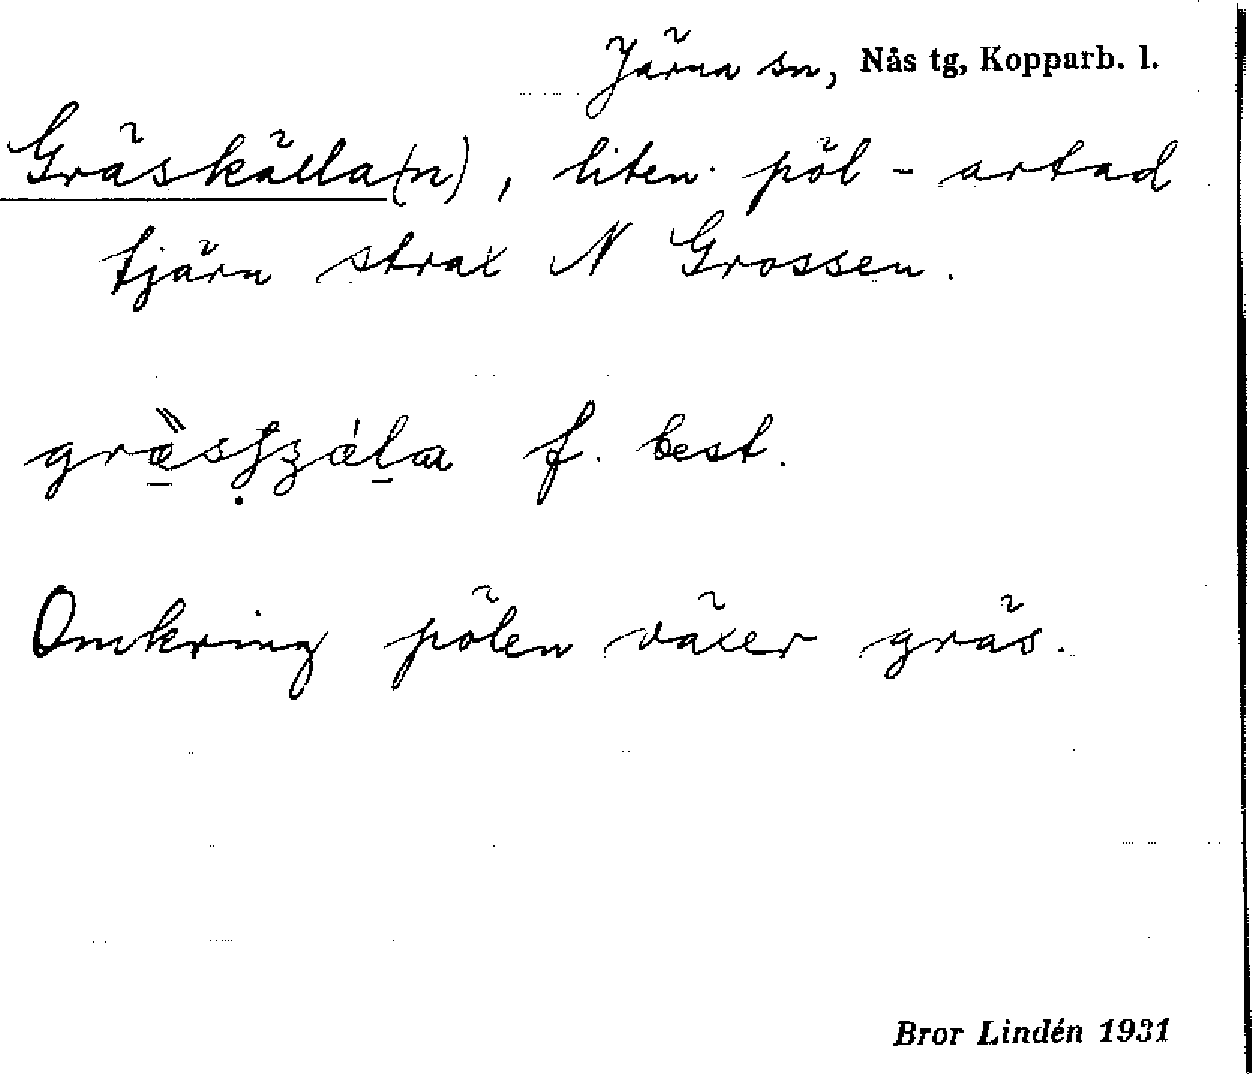 Järna sn, Nås tg, Kopparb. l.
Gräskälla(n), liten pöl-artad
tjärn strax N Grossen.
f. best.
Omkring pölen växer gräs.
Bror Lindén 1931